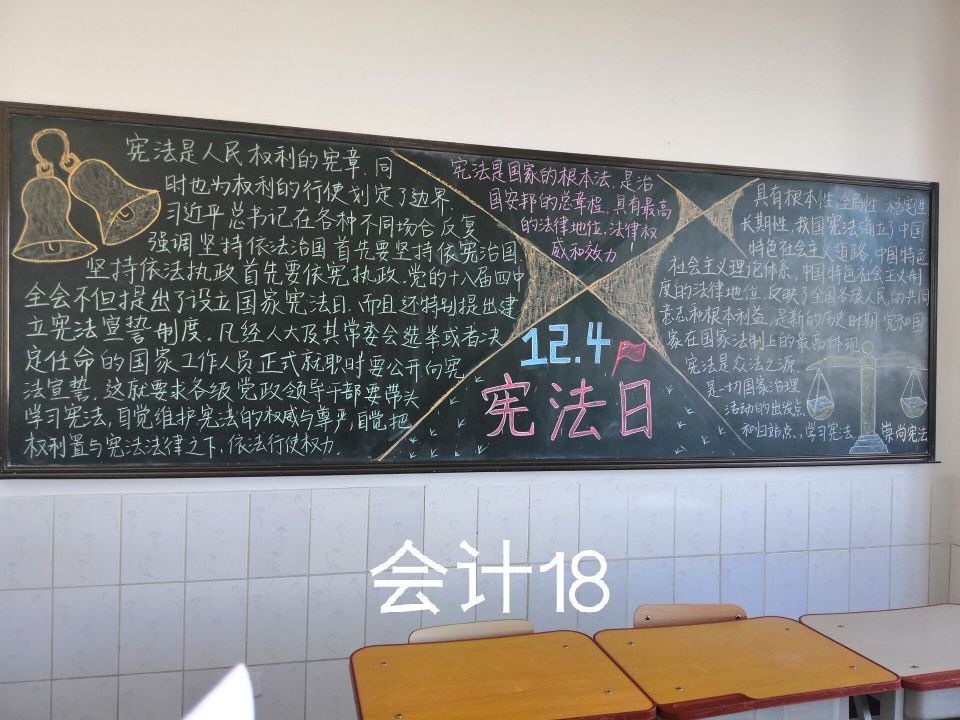 宪法是人民权利的宪章,同
时也为权利的行使划定了边界
习近平总书记在各种不同场合反复
强调坚持依法治国首先要坚持依宪治国
坚持依法执政首先要依宪执政.党的十八届四中
全会不但提出了设立国家宪法日,而且还特别提出建
立宪法宣誓制度.凡经人大及其常委会选举或者决
定任命的国家工作人员正式就职时要公开向宪
法宣誓.这就要求各级党政领导干部要带头
学习宪法,自觉维护宪法的权威与尊严,自觉把
权利置与宪法法律之下,依法行使权力.
宪法是国家的根本法,是治
国安邦的总章程,具有最高
的法律地位,法律权
威和效力
12.4
宪法日
具有根本性,全局性,稳定性,
长期性,我国宪法确立了中国
特色社会主义道路,中国特色
社会主义理论体系,中国特色社会主义制
度的法律地位.反映了全国各族人民的共同
意志和根本利益,是新的历史时期党和国
家在国家法制上的最高体现
宪法是众法之源,
是一切国家治理
活动的出发点
和归站点,学习宪法,崇尚宪法
会计18